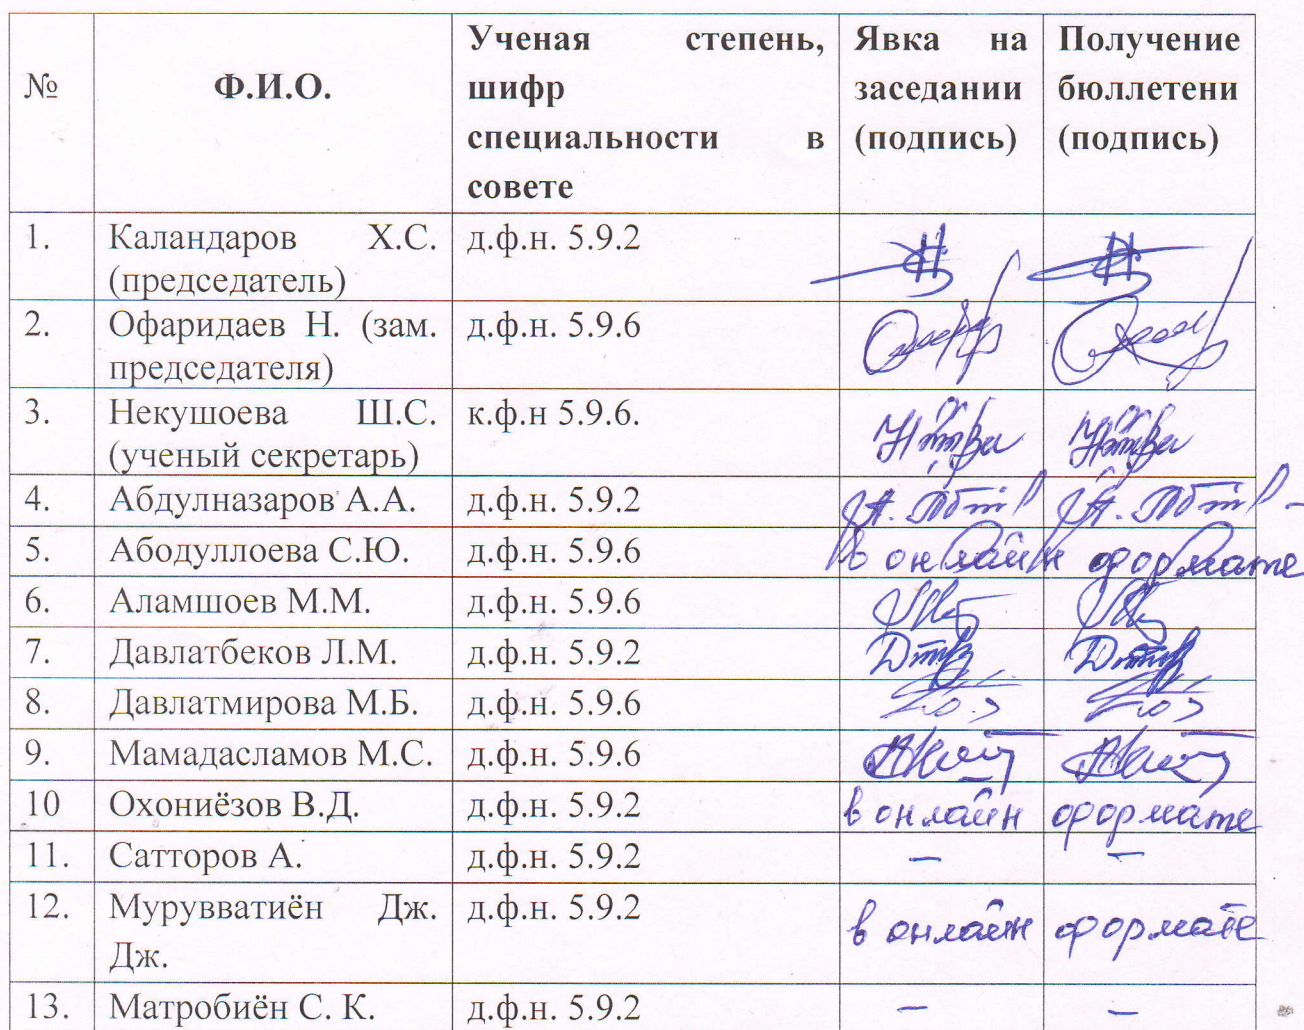 № Ф.И.О. Ученая степень, шифр специальности в совете Явка на заседании (подпись) Получение бюллетени (подпись)
1. Каландаров Х.С. д.ф.н. 5.9.2
(председатель)
2. Офаридаев Н. (зам. д.ф.н. 5.9.6
председателя)
3. Некушоева Ш.С. к.ф.н 5.9.6.
(ученый секретарь)
4. Абдулназаров А.А. д.ф.н. 5.9.2
5. Абодуллоева С.Ю. д.ф.н. 5.9.6 в онлайн формате
6. Аламшоев М.М. д.ф.н. 5.9.6
7. Давлатбеков Л.М. д.ф.н. 5.9.2
8. Давлатмирова М.Б. д.ф.н. 5.9.6
9. Мамадасламов М.С. д.ф.н. 5.9.6
10 Охониёзов В.Д. д.ф.н. 5.9.2 в онлайн формате
11. Сатторов А. д.ф.н. 5.9.2 – –
12. Мурувватиён Дж. д.ф.н. 5.9.2 в онлайн формате
Дж.
13. Матробиён С. К. д.ф.н. 5.9.2 – –